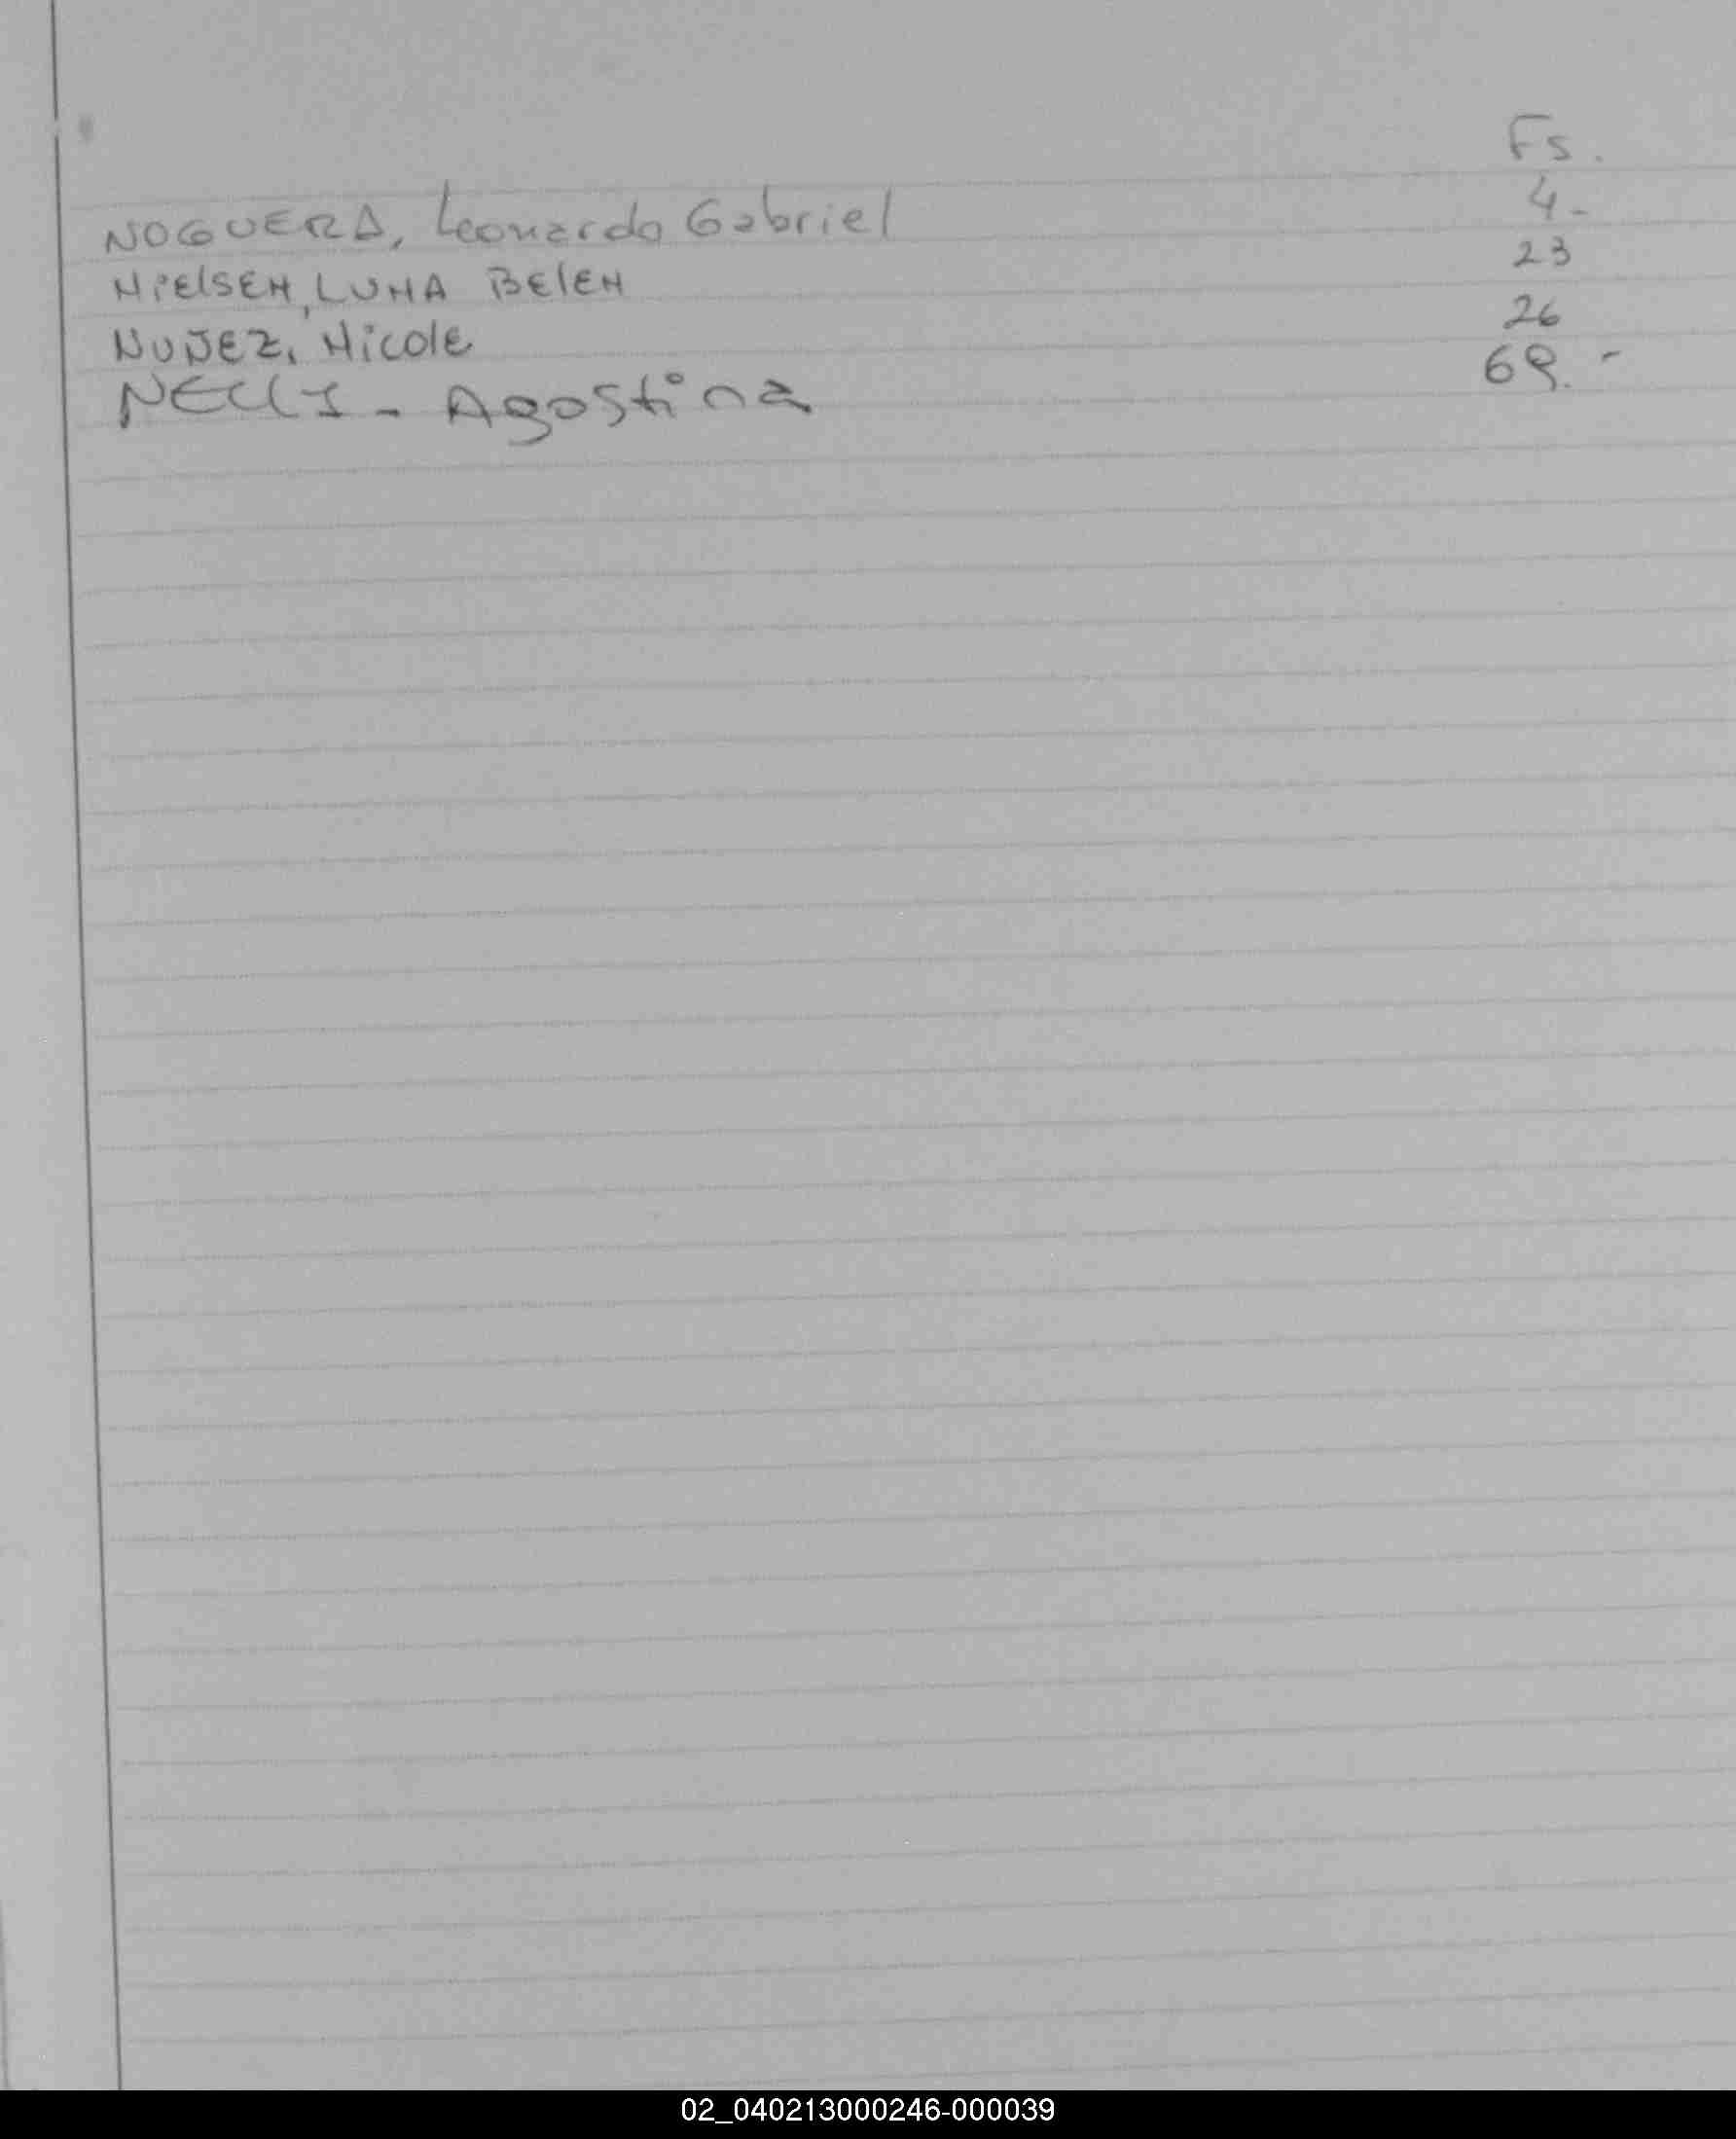 Fs.
NOGUERA, Leonardo Gabriel 4-
NIElSEN, LUNA BElEN 23
NUÑEZ, Nicole 26
- Agostina 69.-
02_040213000246-000039